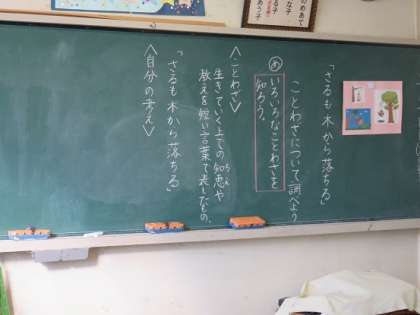 「さるも木から落ちる」
ことわざについて調べよう
め
いろいろなことわざを
知ろう。
＜ことわざ＞
生きていく上での知恵や
ちえ
教えを短い言葉で表したもの。
「さるも木から落ちる」
＜自分の考え＞